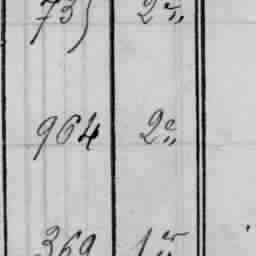 735 2e „
964 2e „
369 1er